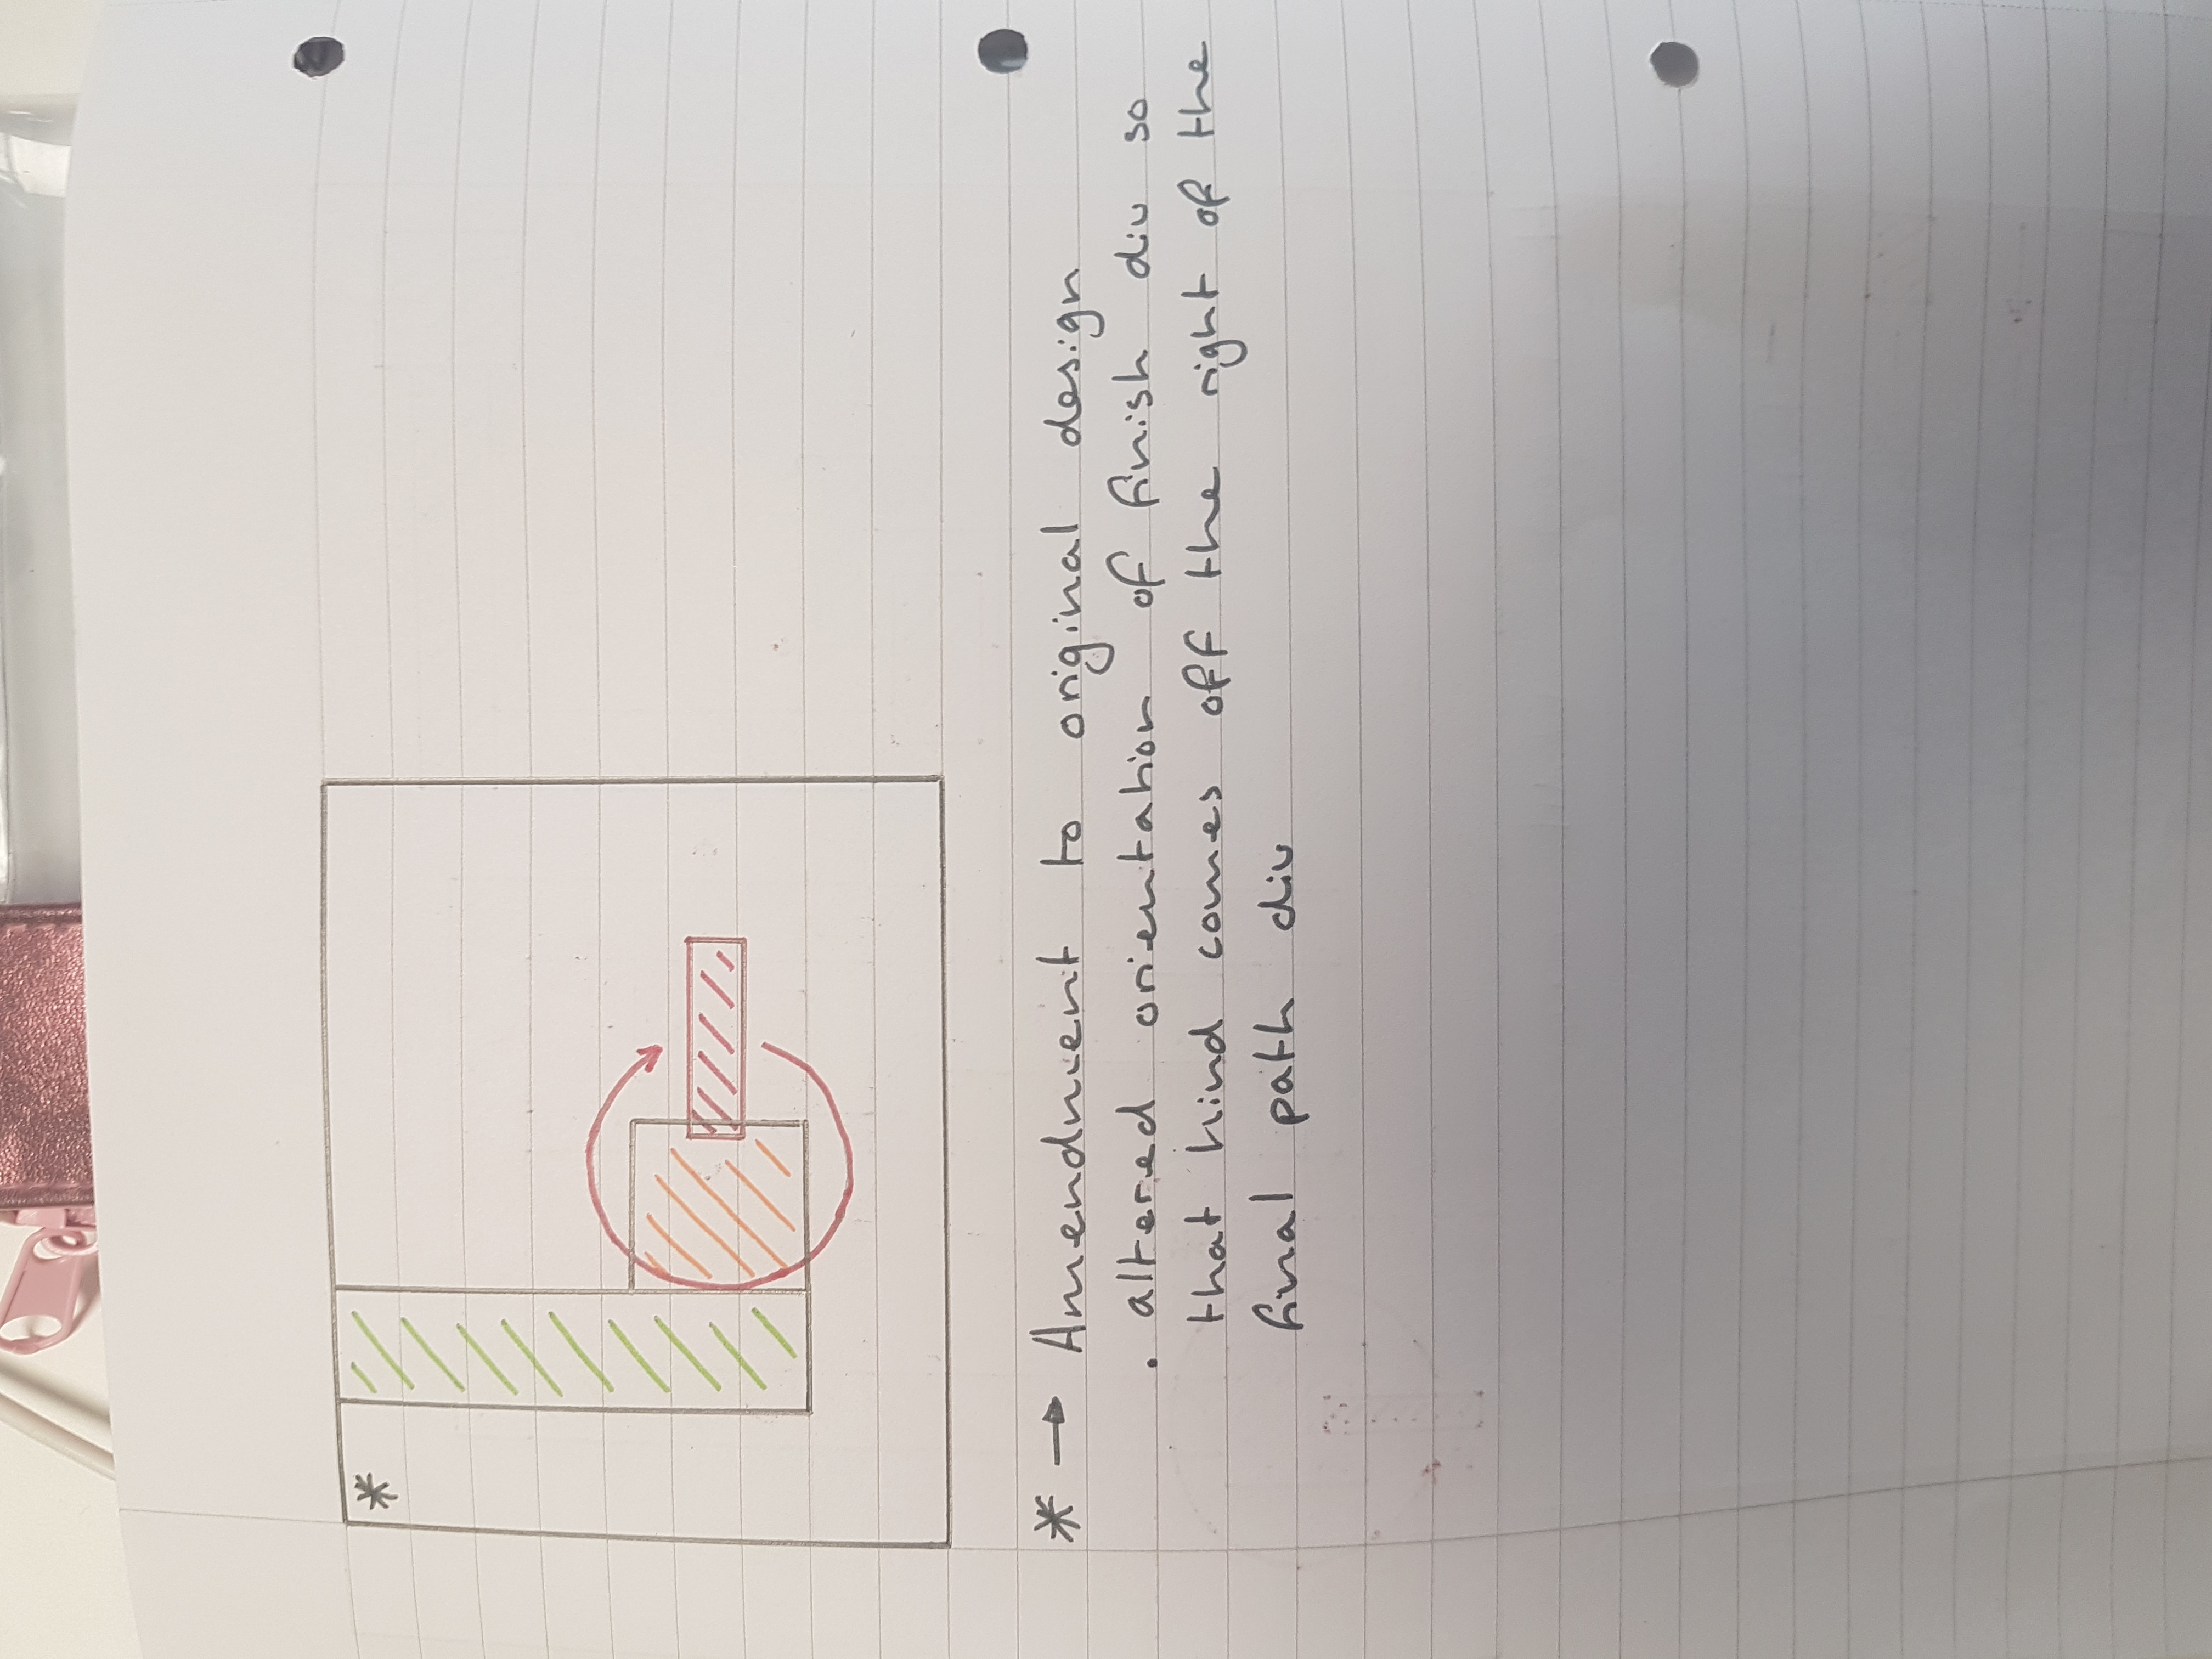 *
* → Amendment to original design
. altered orientation of finish div so
that hind comes off the right of the
final path div